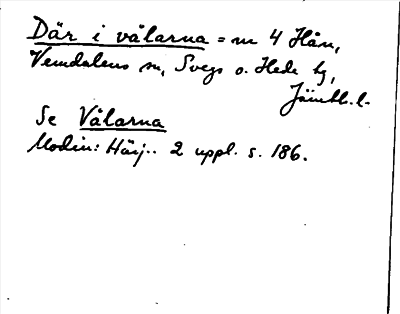 Där i vålarna = nr 4 Hån,
Vemdalens sn, Svegs o. Hede tg,
Jämtl. l.
Se Vålarna
Modin: Härj.. 2 uppl. s. 186.